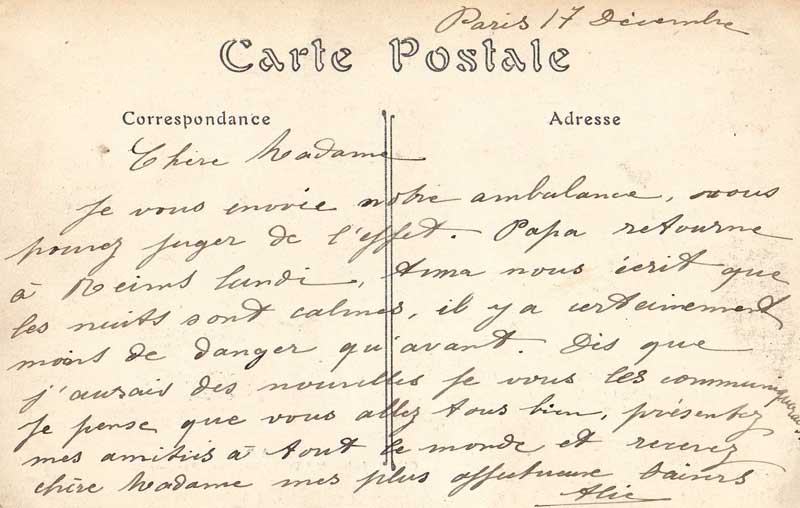 Paris 17 Décembre
Carte Postale
Correspondance
Adresse
Chère Madame
Je vous envoie notre ambulance, vous
pouvez juger de l'effet. Papa retourne
à Reims lundi, nous écrit que
les nuits sont calmes, il y a certainement
moins de danger qu'avant. Dès que
j'aurais des nouvelles je vous les communiquerai.
Je pense que vous allez tous bien, présentez
mes amitiés à tout le monde et recevez
chère Madame mes plus affectueux baisers